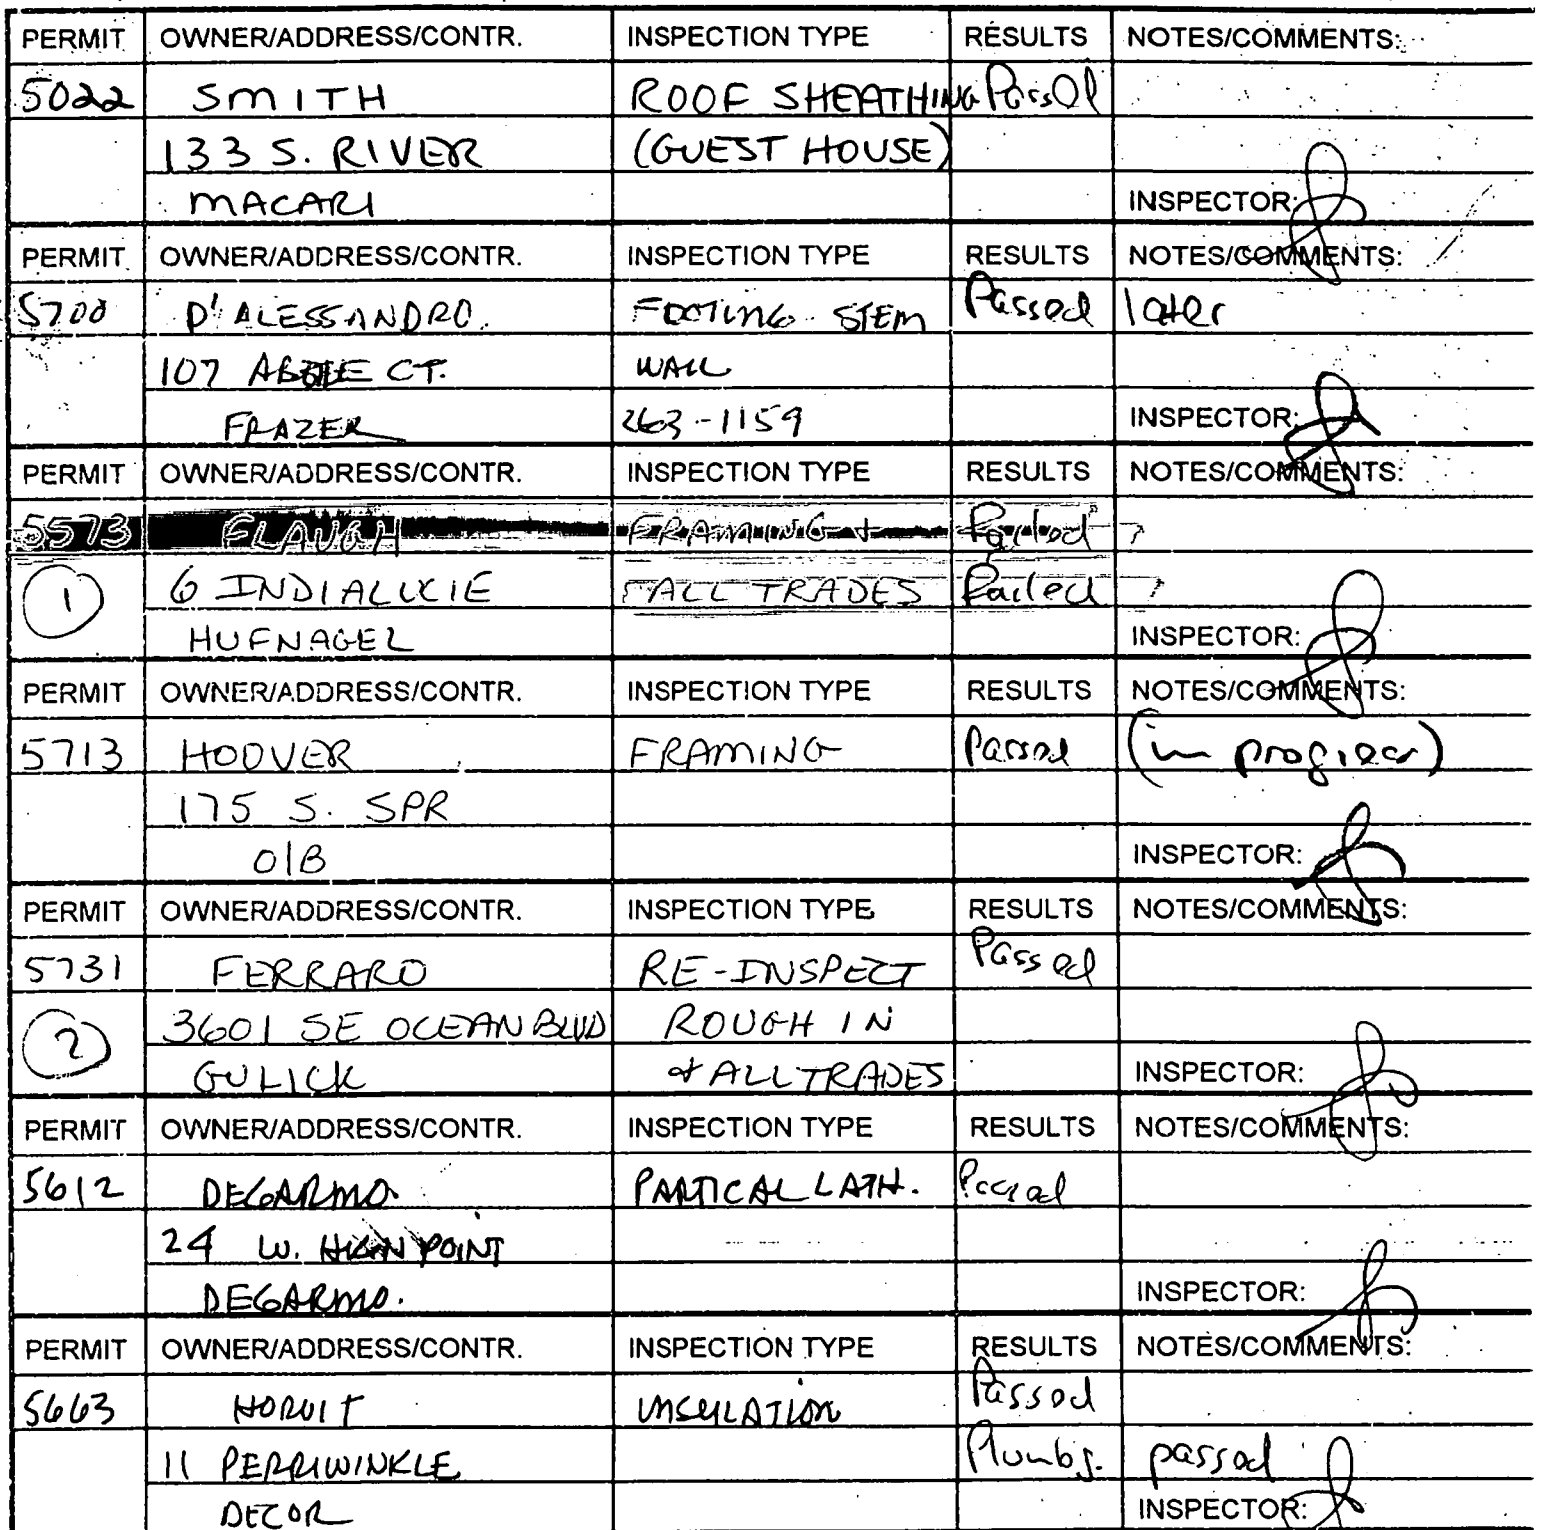 PERMIT OWNER/ADDRESS/CONTR. INSPECTION TYPE RESULTS NOTES/COMMENTS:
5022 SMITH ROOF SHEATHING Passed
133 S. RIVER (GUEST HOUSE)
MACARI INSPECTOR:
PERMIT OWNER/ADDRESS/CONTR. INSPECTION TYPE RESULTS NOTES/COMMENTS:
5700 D'ALESSANDRO FOOTING STEM Passed later
107 CT. WALL
FRAZER 263-1159 INSPECTOR:
PERMIT OWNER/ADDRESS/CONTR. INSPECTION TYPE RESULTS NOTES/COMMENTS:
5573 FLAUGH FRAMING + Failed
1 6 INDIALUCIE ALL TRADES Failed
HUFNAGEL INSPECTOR:
PERMIT OWNER/ADDRESS/CONTR. INSPECTION TYPE RESULTS NOTES/COMMENTS:
5713 HOOVER FRAMING Passed (in progress)
175 S. SPR
O/B INSPECTOR:
PERMIT OWNER/ADDRESS/CONTR. INSPECTION TYPE RESULTS NOTES/COMMENTS:
5731 FERRARO RE-INSPECT Passed
2 3601 SE OCEAN BLVD ROUGH IN
GULICK + ALL TRADES INSPECTOR:
PERMIT OWNER/ADDRESS/CONTR. INSPECTION TYPE RESULTS NOTES/COMMENTS:
5612 DEGARMO. PARTICAL LATH. Passed
24 W. HIGH POINT
DEGARMO. INSPECTOR:
PERMIT OWNER/ADDRESS/CONTR. INSPECTION TYPE RESULTS NOTES/COMMENTS:
5663 HORVIT INSULATION Passed
11 PERRIWINKLE Plumbg. passed
DECOR INSPECTOR: